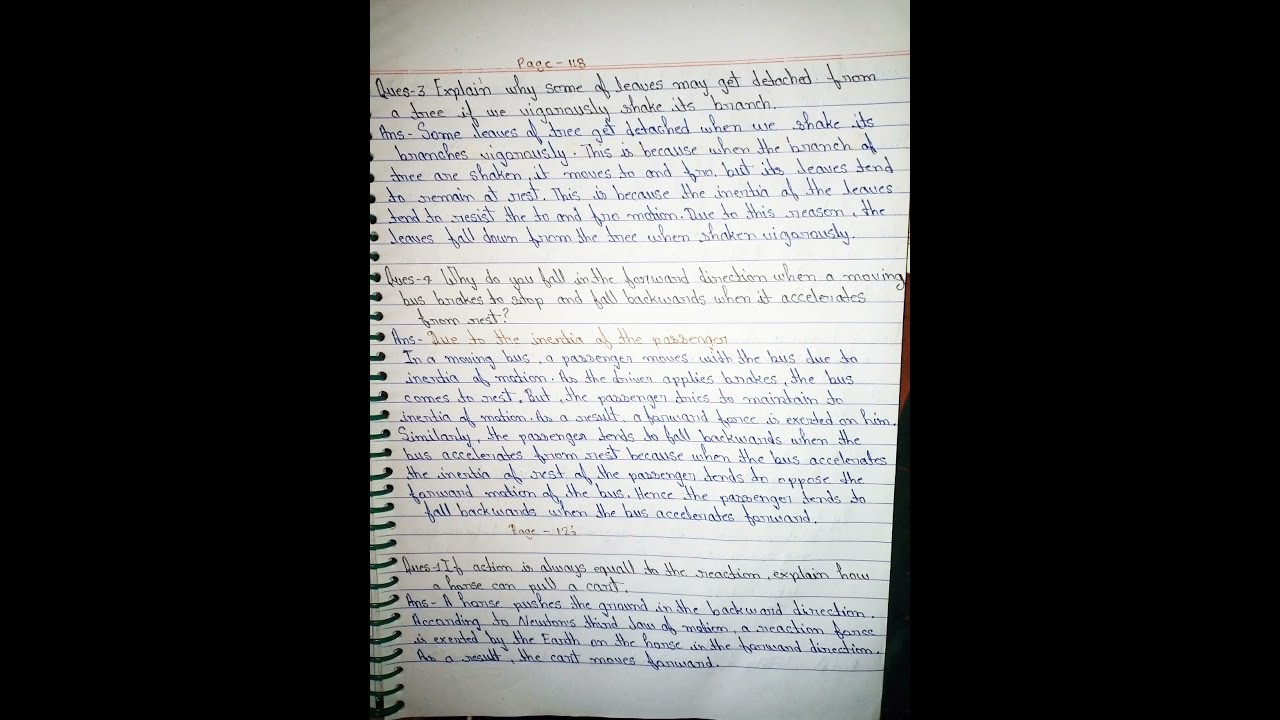 Page - 118
Ques-3 Explain why some of leaves may get detached from
a tree if we vigorously shake its branch.
Ans - Some leaves of tree get detached when we shake its
branches vigorously. This is because when the branch of
tree are shaken, it moves to and fro, but its leaves tend
to remain at rest. This is because the inertia of the leaves
tend to resist the to and fro motion. Due to this reason, the
leaves fall down from the tree when shaken vigorously.
Ques-4 Why do you fall in the forward direction when a moving
bus brakes to stop and fall backwards when it accelerates
from rest?
Ans - Due to the inertia of the passenger
In a moving bus, a passenger moves with the bus due to
inertia of motion. As the driver applies brakes, the bus
comes to rest. But, the passenger tries to maintain to
inertia of motion. As a result, a forward force is exerted on him.
Similarly, the passenger tends to fall backwards when the
bus accelerates from rest because when the bus accelerates
the inertia of rest of the passenger tends to oppose the
forward motion of the bus. Hence the passenger tends to
fall backwards when the bus accelerates forward.
Page - 126
Ques-1 If action is always equall to the reaction, explain how
a horse can pull a cart.
Ans - A horse pushes the ground in the backward direction.
According to Newtons third law of motion, a reaction force
is exerted by the Earth on the horse in the forward direction.
As a result, the cart moves forward.